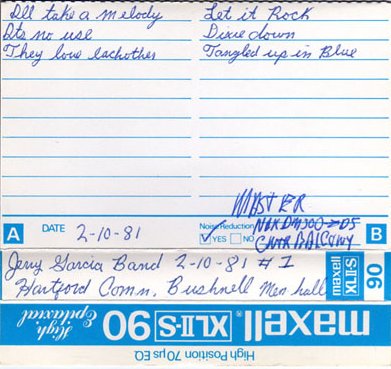 I'll take a melody
Its no use
They love eachother
Let it Rock
Dixie down
Tangled up in Blue
MASTER
NAK DM500 → D5
CNTR BALCONY
A
DATE 2-10-81
Noise Reduction
YES NO
B
Jerry Garcia Band 2-10-81 #1
Hartford Conn. Bushnell Mem hall
maxell XLII-S 90
maxell XLII-S 90
High Epitaxial
High Position 70 μs EQ